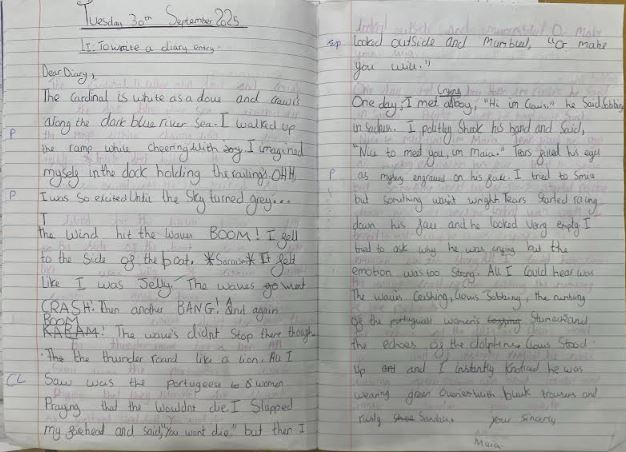 Tuesday 30th September 2025
LI: To write a diary entry.
Dear Diary,
The cardinal is white as a dove and crawls
along the dark blue river sea. I walked up
P
the ramp while cheering with joy. I imagined
myself in the dock holding the railings. OHH
P
I was so excited until the sky turned grey...
I
the wind hit the waves BOOM! I fell
to the side of the boat. *Sarcasm* It felt
Like I was Jelly. The waves went
CRASH! Then another BANG! And again
BOOM
KABAM! The waves didnt stop there though
The the thunder roard like a lion. All I
CL
Saw was the portugeese women
Praying that the wouldnt die. I Slapped
my forehead and said, "You wont die." but then I
looked outside and Mumbled, "Or make
you will."
crying
One day, I met a boy, "Hi im Clovis," he Said Sobbing
in Sadness. I politly Shook his hand and Said,
"Nice to meet you, im Maia." Tears filled his eyes
P
as mystery engraved on his face. I tried to Smile
but something wasn't wright Tears Started racing
down his face and he looked very empty I
tried to ask why he was crying but the
emotion was too Strong. All I Could hear was
The waves Crashing, Clovis Sobbing, The
of the portuguese women's Stomach and
the echoes of the dolphins. Clovis Stood
up and I instantly Noticed he was
wearing green with black trousers and
Sandles. your Sincerly
Maia